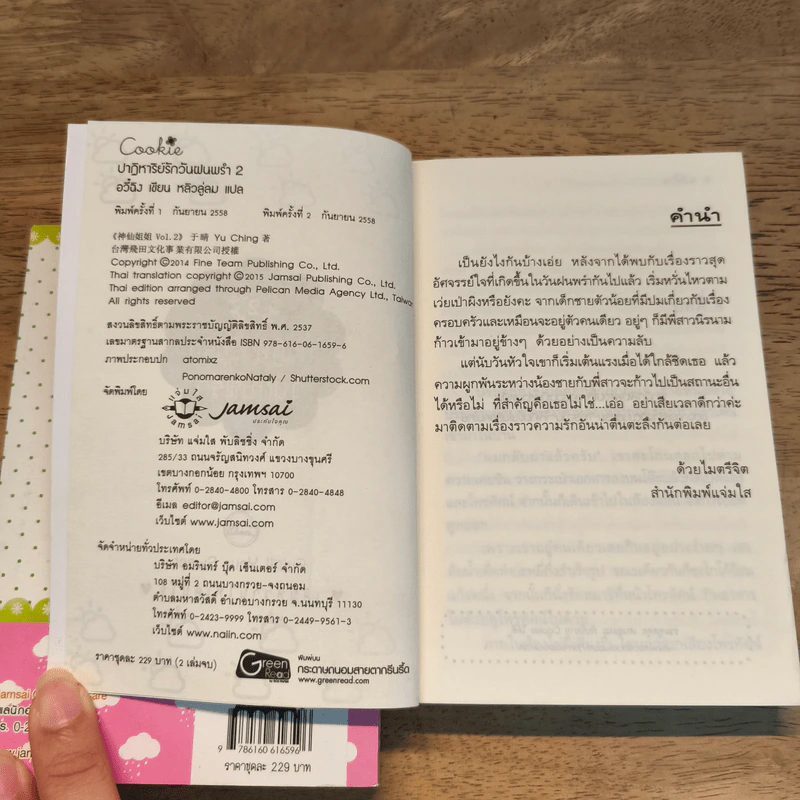 Cookie
ปาฏิหาริย์รักวันฝนพรำ 2
อวี๋ฉิง เขียน หลิวลู่ลม แปล
พิมพ์ครั้งที่ 1 กันยายน 2558 พิมพ์ครั้งที่ 2 กันยายน 2558
《神仙姐姐 Vol.2》 于晴 Yu Ching 著
台灣飛田文化事業有限公司授權
Copyright ©2014 Fine Team Publishing Co., Ltd.
Thai translation copyright ©2015 Jamsai Publishing Co., Ltd.
Thai edition arranged through Pelican Media Agency Ltd., Taiwan
All rights reserved
สงวนลิขสิทธิ์ตามพระราชบัญญัติลิขสิทธิ์ พ.ศ. 2537
เลขมาตรฐานสากลประจำหนังสือ ISBN 978-616-06-1659-6
ภาพประกอบปก atomixz
PonomarenkoNataly / Shutterstock.com
จัดพิมพ์โดย
แจ่มใส
JAMSAI
Jamsai
บริษัท แจ่มใส พับลิชชิ่ง จำกัด
285/33 ถนนจรัญสนิทวงศ์ แขวงบางขุนศรี
เขตบางกอกน้อย กรุงเทพฯ 10700
โทรศัพท์ 0-2840-4800 โทรสาร 0-2840-4848
อีเมล editor@jamsai.com
เว็บไซต์ www.jamsai.com
จัดจำหน่ายทั่วประเทศโดย
บริษัท อมรินทร์ บุ๊ค เซ็นเตอร์ จำกัด
108 หมู่ที่ 2 ถนนบางกรวย-จงถนอม
ตำบลมหาสวัสดิ์ อำเภอบางกรวย จ.นนทบุรี 11130
โทรศัพท์ 0-2423-9999 โทรสาร 0-2449-9561-3
เว็บไซต์ www.naiin.com
ราคาชุดละ 229 บาท (2 เล่มจบ)
Green Read
พิมพ์บน
กระดาษถนอมสายตากรีนรี้ด
www.greenread.com
คำนำ
เป็นยังไงกันบ้างเอ่ย หลังจากได้พบกับเรื่องราวสุด
อัศจรรย์ใจที่เกิดขึ้นในวันฝนพรำกันไปแล้ว เริ่มหวั่นไหวตาม
เว่ยเป่าผิงหรือยังคะ จากเด็กชายตัวน้อยที่มีปมเกี่ยวกับเรื่อง
ครอบครัวและเหมือนจะอยู่ตัวคนเดียว อยู่ๆ ก็มีพี่สาวนิรนาม
ก้าวเข้ามาอยู่ข้างๆ ด้วยอย่างเป็นความลับ
แต่นับวันหัวใจเขาก็เริ่มเต้นแรงเมื่อได้ใกล้ชิดเธอ แล้ว
ความผูกพันระหว่างน้องชายกับพี่สาวจะก้าวไปเป็นสถานะอื่น
ได้หรือไม่ ที่สำคัญคือเธอไม่ใช่...เอ่อ อย่าเสียเวลาดีกว่าค่ะ
มาติดตามเรื่องราวความรักอันน่าตื่นตะลึงกันต่อเลย
ด้วยไมตรีจิต
สำนักพิมพ์แจ่มใส
9 786160 616596
ราคาชุดละ 229 บาท